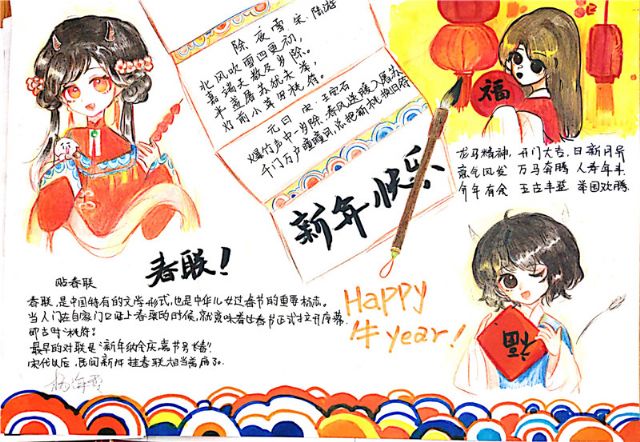 除夜雪 宋 陆游
北风吹雪四更初,
嘉瑞天教及岁除。
半盏屠苏犹未举,
灯前小草写桃符。
元日 宋 王安石
爆竹声中一岁除,春风送暖入屠苏
千门万户曈曈日,总把新桃换旧符
新年快乐
福
龙马精神, 开门大吉, 日新月异
意气风发 万马奔腾 人寿年丰
年年有余 五谷丰登 举国欢腾
春联!
贴春联
春联,是中国特有的文学形式,也是中华儿女过春节的重要标志。
当人们在自家门口贴上春联的时候,就意味着过春节正式拉开序幕
即古时"桃符"
最早的对联是"新年纳余庆,嘉节号长春"
宋代以后,民间新年挂春联相当普遍了。
Happy
牛year!
福